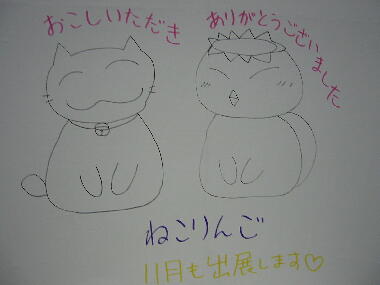 おこしいただき
ありがとうございました
ねこりんご
11月も出展します♡